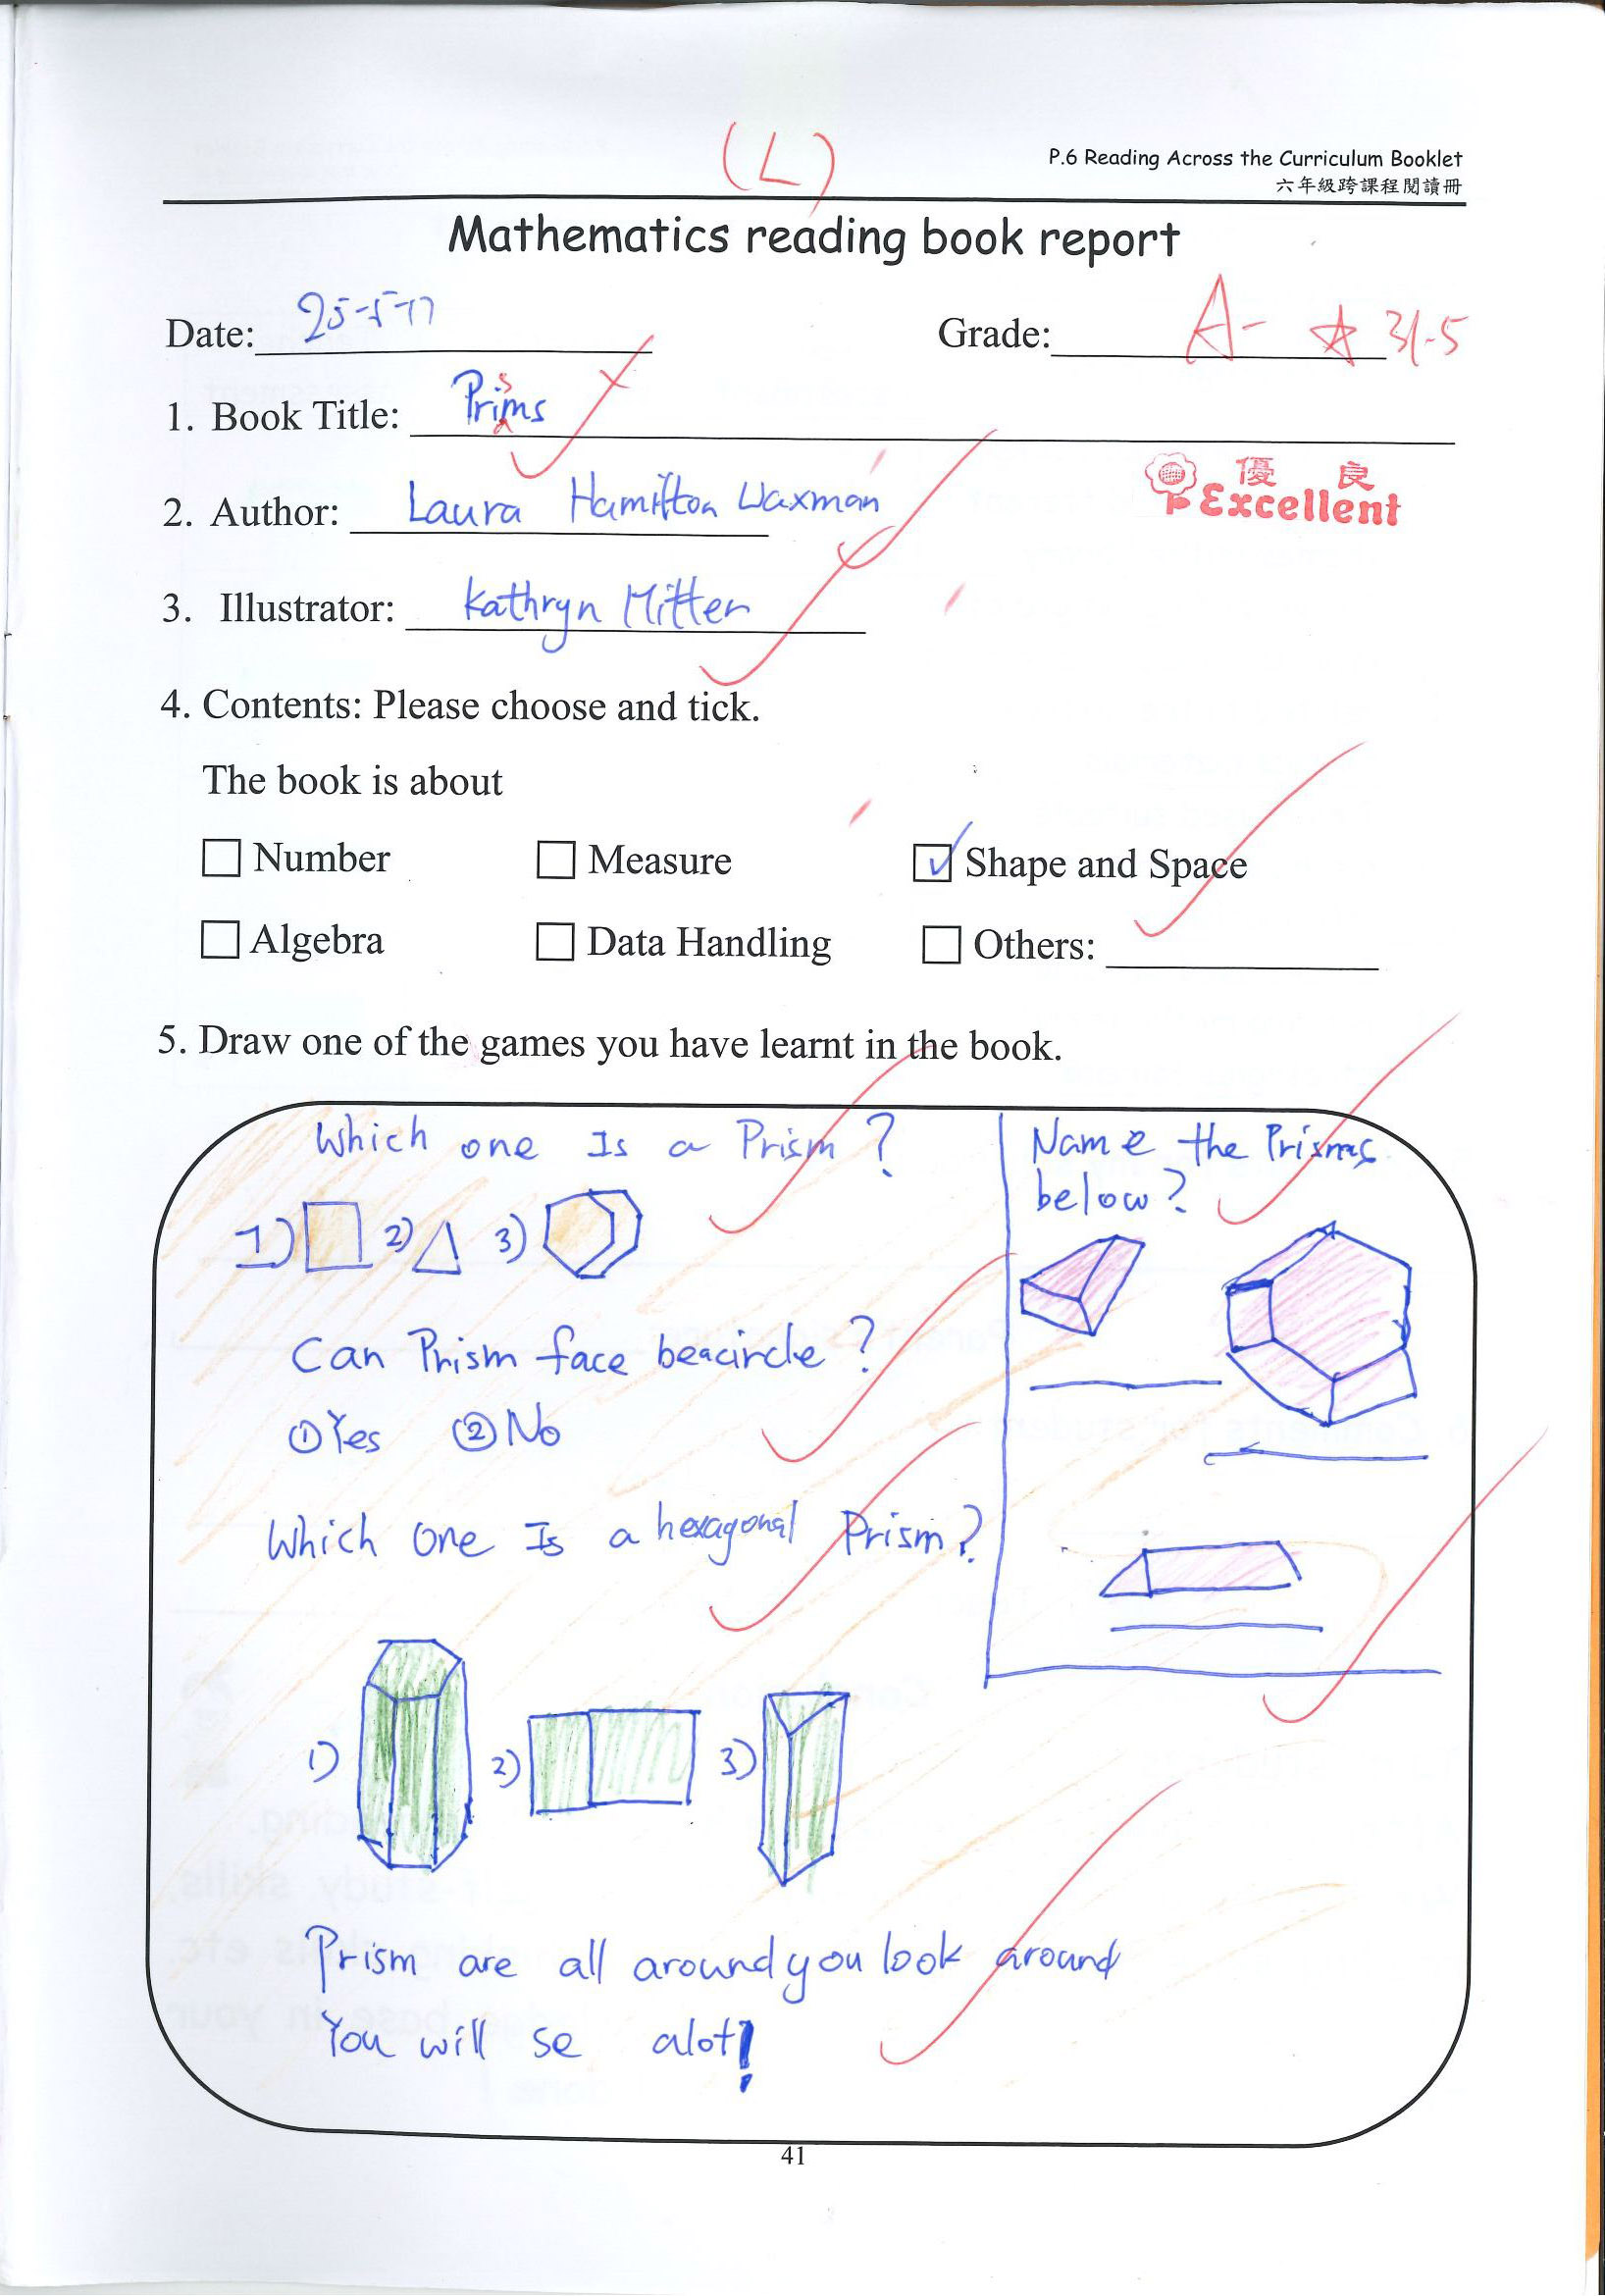 (L)
P.6 Reading Across the Curriculum Booklet
六年級跨課程閱讀冊
Mathematics reading book report
Date: 25-5-17
Grade: A- ☆ 31-5
s
1. Book Title: Prims
優 良
Excellent
2. Author: Laura Hamilton Waxman
3. Illustrator: Kathryn Mitter
4. Contents: Please choose and tick.
The book is about
Number Measure ✓ Shape and Space
Algebra Data Handling Others:
5. Draw one of the games you have learnt in the book.
Which one Is a Prism?
1) 2) 3)
Can Prism face be a circle?
①Yes ②No
Which One Is a hexagonal Prism?
1) 2) 3)
Name the Prisms
below?
Prism are all around you look around
You will se alot!
41